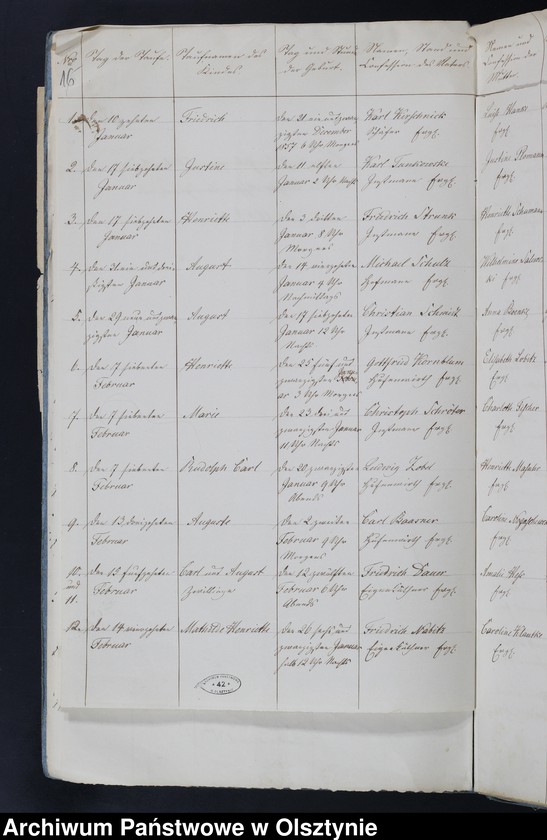 Nro
Tag der Taufe.
Taufnamen des
Kindes
Tag und Stunde
der Geburt.
Namen, Stand und
Confession des Vaters
Namen und
Confession der
Mutter
16
1. den 10 zehnten
Januar
Friedrich
den 31 ein und
zigsten December
1857 6 Uhr Morgens
Karl
evgl.
evgl.
2. den 17 siebzehnten
Januar
Justine
den 11 elften
Januar 2 Uhr Nachts
Karl
Instmann evgl.
Justine
evgl.
3. den 17 siebzehnten
Januar
Henriette
den 3 dritten
Januar 8 Uhr
Morgens
Friedrich Strunk
Instmann evgl.
Henriette Schumann
evgl.
4. den 31 ein und drei
ßigsten Januar
August
den 14 vierzehnten
Januar 9 Uhr
Nachmittags
Michael Schulz
evgl.
Wilhelmine
evgl.
5. den 29 neun und zwan
zigsten Januar
August
den 17 siebzehnten
Januar 12 Uhr
Nachts
Christian Schmidt
Instmann evgl.
Anna
evgl.
6. den 7 siebenten
Februar
Henriette
den 25 fünf und
zwanzigsten Janu
ar 3 Uhr Morgens
Gottfried Kornblum
Hufenwirth evgl.
Elisabeth
evgl.
7. den 7 siebenten
Februar
Marie
den 23 drei und
zwanzigsten Januar
11 Uhr Nachts
Christoph Schröter
Instmann evgl.
Charlotte Fischer
evgl.
8. den 7 siebenten
Februar
Rudolph Carl
den 20 zwanzigsten
Januar 9 Uhr
Abends
Ludwig Zobel
Hufenwirth evgl.
Henriette
evgl.
9. den 13 dreizehnten
Februar
Auguste
den 2 zweiten
Februar 9 Uhr
Morgens
Carl Baasner
Hufenwirth evgl.
Caroline
evgl.
10.
und
11.
den 15 fünfzehnten
Februar
Carl und August
Zwillinge
den 12 zwölften
Februar 6 Uhr
Abends
Friedrich Dauer
Eigenkäthner evgl.
Amalie
evgl.
12. den 14 vierzehnten
Februar
Mathilde Henriette
den 26 sechs und
zwanzigsten Januar
halb 12 Uhr Nachts
Friedrich Nabitz
Eigenkäthner evgl.
Caroline Klautke
evgl.
42
Archiwum Państwowe w Olsztynie